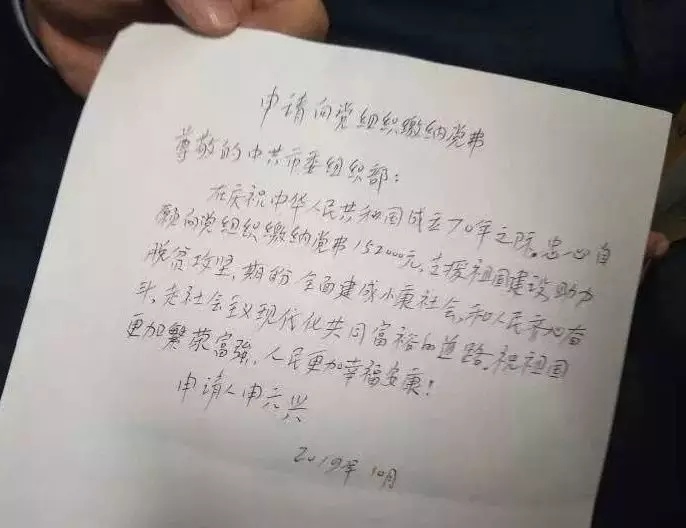 申请向党组织缴纳党费
尊敬的中共市委组织部：
在庆祝中华人民共和国成立70年之际，忠心自
愿向党组织缴纳党费152000元，支援祖国建设，助力
脱贫攻坚，期盼全面建成小康社会，和人民齐心奋
斗，走社会主义现代化共同富裕的道路。祝祖国
更加繁荣富强，人民更加幸福安康！
申请人申六兴
2019年10月